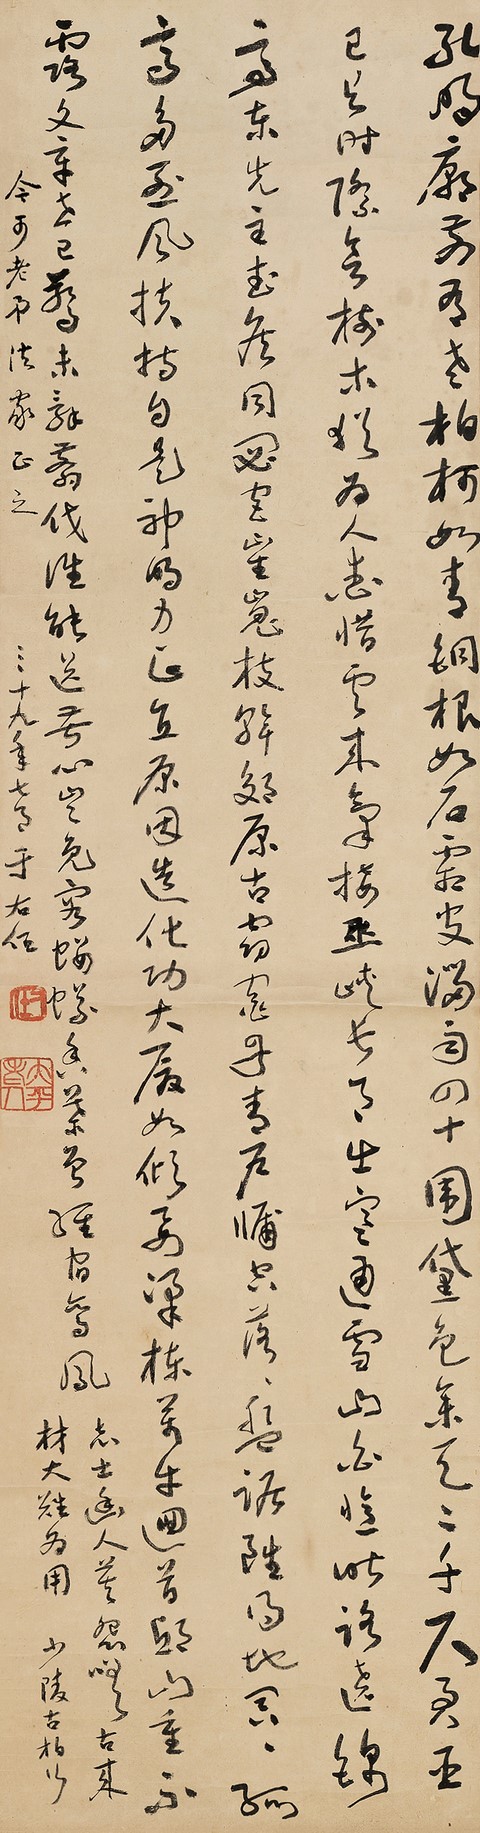 孔明廟前有老柏柯如青銅根如石霜皮溜雨四十圍黛色參天二千尺君臣
已與時際會樹木猶為人愛惜雲來氣接巫峽長月出寒通雪山白憶昨路遶錦
亭東先主武侯同閟宮崔嵬枝幹郊原古窈窕丹青戶牖空落々盤踞雖得地冥々孤
高多烈風扶持自是神明力正直原因造化功大廈如傾要梁棟萬牛迴首邱山重不
露文章世已驚未辭翦伐誰能送苦心豈免容螻蟻香葉曾經宿鸞鳳
志士幽人莫怨嗟古來
材大難為用 少陵古柏行
令可老弟法家正之 三十九年七月 于右任
右任
太平老人